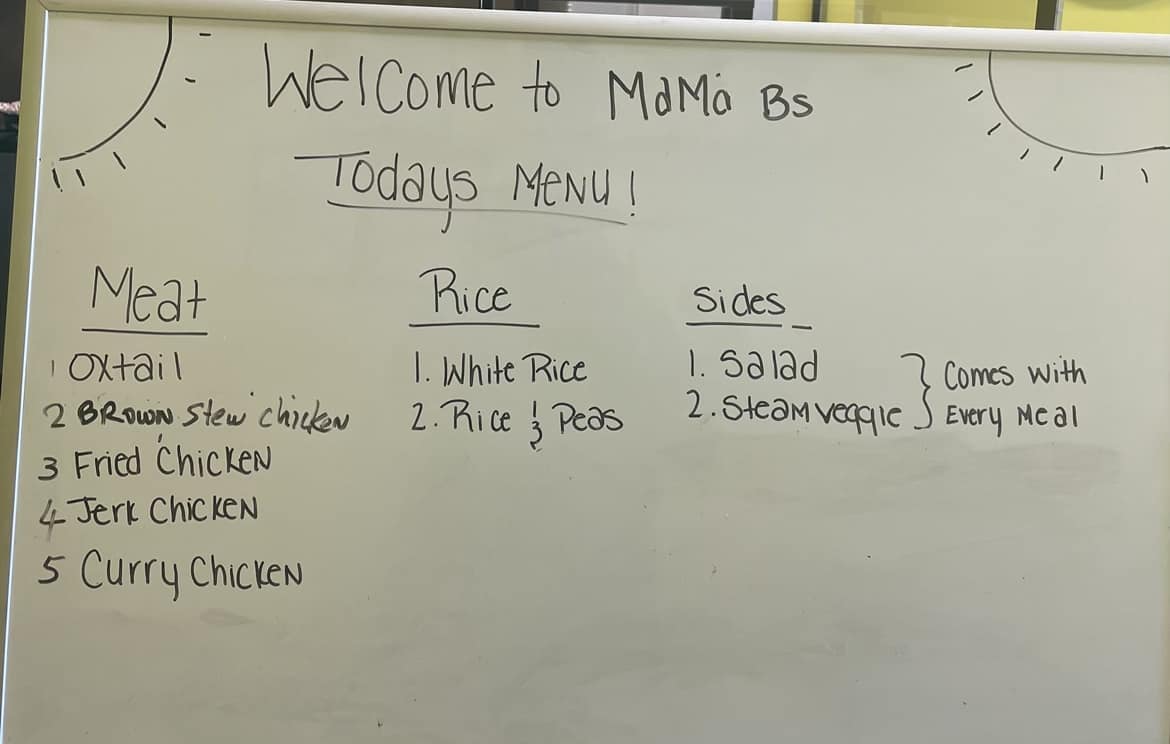 Welcome to Mama Bs
Todays Menu!
Meat
1 Oxtail
2 Brown Stew chicken
3 Fried Chicken
4 Jerk Chicken
5 Curry Chicken
Rice
1. White Rice
2. Rice & Peas
Sides
1. Salad
2. Steam veggie
Comes with
Every Meal